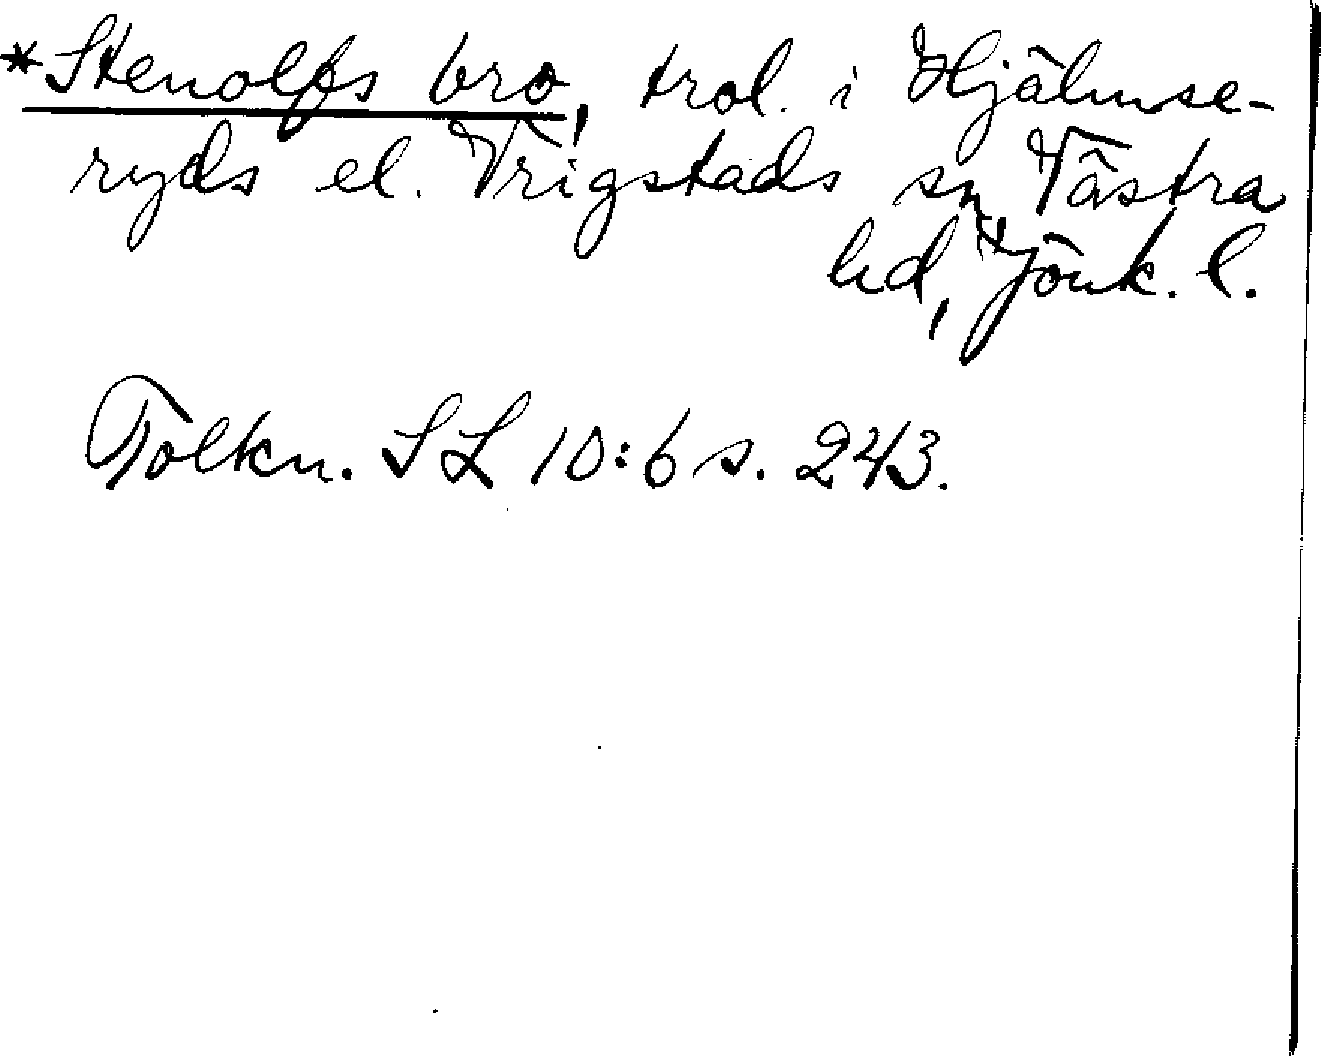 *Stenolfs bro, trol. i Hjälmse-
ryds el. Vrigstads sn, Västra
hd, Jönk. l.
Folkn. SL 10:6 s. 243.